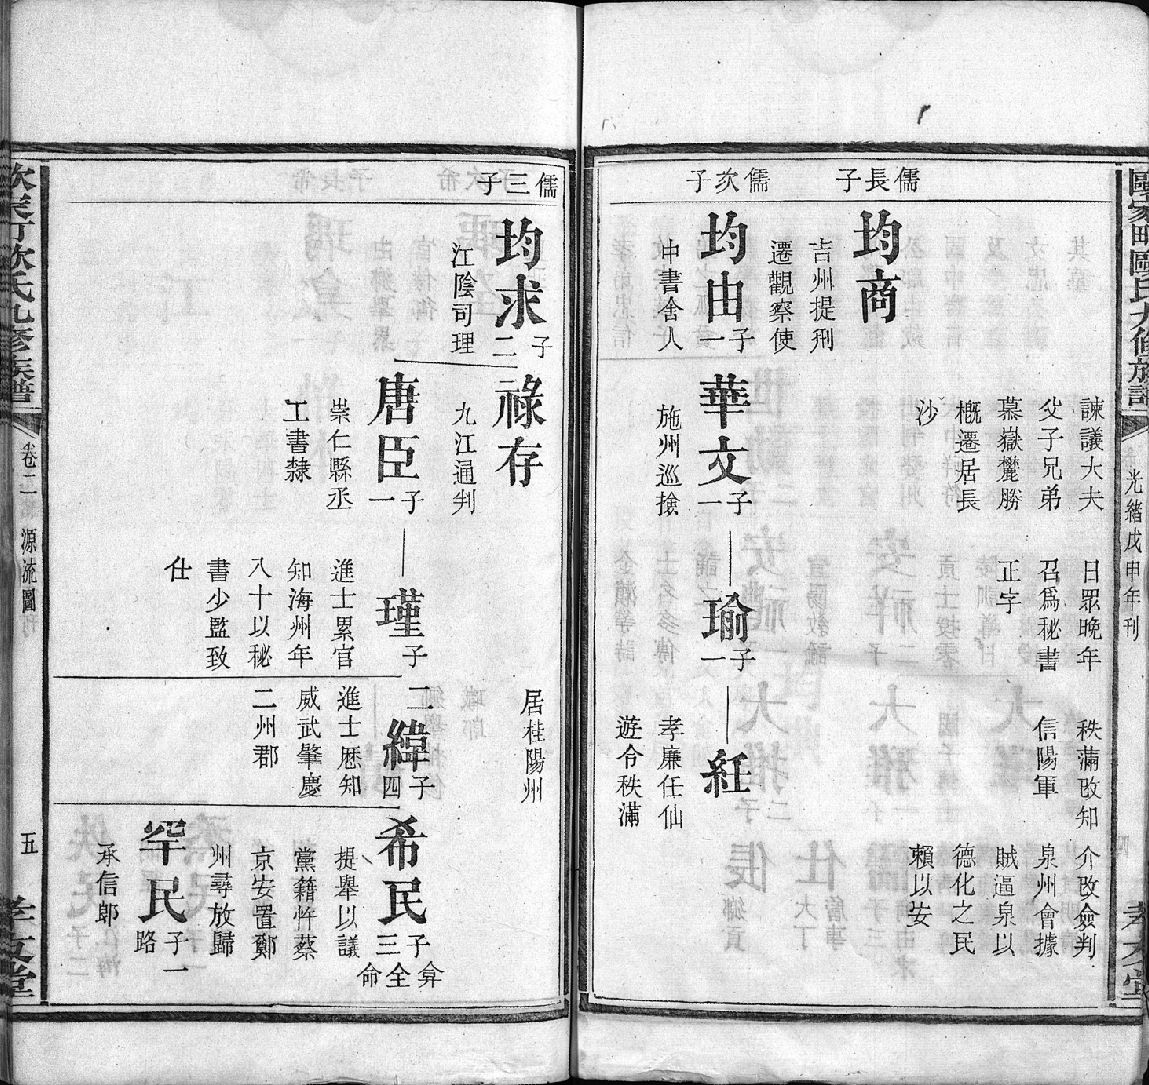 光緒戊申年刊
儒長子
均商
吉州提刑
遷觀察使
諫議大夫
父子兄弟
慕嶽麓勝
概遷居長
沙
日眾晚年
召爲秘書
正字
秩滿改知
信陽軍
介改僉判
泉州會據
賊逼泉以
德化之民
賴以安
儒次子
均由
子一
中書舍人
華文
子一
施州巡撿
瑜
子一
紅
孝廉任仙
遊令秩滿
儒三子
均求
子二
江陰司理
祿存
九江通判
居桂陽州
唐臣
子一
崇仁縣丞
工書隸
瑾
子二
進士累官
知海州年
八十以秘
書少監致
仕
緯
子四
進士歷知
威武肇慶
二州郡
希民
子三
弇全命
提舉以議
黨籍忤蔡
京安置鄭
州尋放歸
罕民
子一
路
承信郎
卷二
源流圖
五